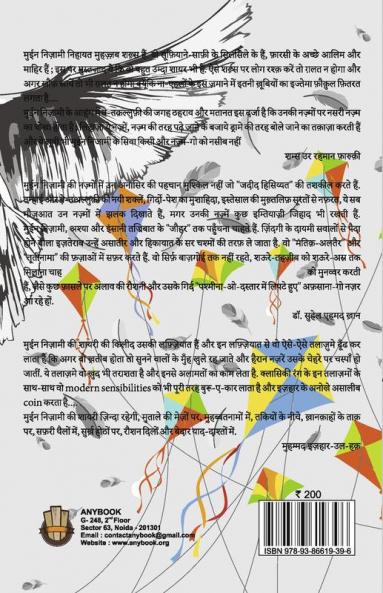 मुईन निज़ामी निहायत मुहज़्ज़ब शख़्स हैं, वो सूफ़ियाने-साफ़ी के सिलसिले के हैं, फ़ारसी के अच्छे आलिम और
माहिर हैं ; इस पर मुस्तज़ाद है कि वो बहुत उम्दा शायर भी हैं. ऐसे शख़्स पर लोग रश्क करें तो ग़लत न होगा और
अगर लोग
इस ज़माने में इतनी ख़ूबियों का इज्तेमा फ़ौक़ुल फ़ितरत
लगता है....
मुईन निज़ामी के
की जगह ठहराव और मतानत इस दर्जा है कि उनकी नज़्मों पर नसरी नज़्म
का धोका होता है
नज़्म की तरह पढ़े जाने के बजाये ड्रामे की तरह बोले जाने का तक़ाज़ा करती हैं
और
मुईन निज़ामी के सिवा किसी और नज़्म-गो को नसीब नहीं
शम्सउर रहमान फ़ारूक़ी
मुईन निज़ामी की नज़्मों में उन अनासिर की पहचान मुश्किल नहीं जो “जदीद हिसिय्यत” की तशकील करते हैं.
की नयी शक्ल, गिर्दो-पेश का मुशाहिदा, इस्तेमाल की मुख़्तलिफ़ सूरतों से नफ़रत, ये सब
मौज़ूआत उन नज़्मों में झलक दिखाते हैं, मगर उनकी नज़्में कुछ इम्तियाज़ी जिहाद भी रखती हैं.
मुईन निज़ामी, अश्या और इंसानी तज्रिबात के “जौहर” तक पहुँचना चाहते हैं. ज़िंदगी के दायमी सवालों से पैदा
होने वाला इज़तेराब उन्हें असातीर और हिकायात के सर चश्मों की तरफ़ ले जाता है. वो “मंतिक़-अलतैर” और
“तूतीनामा” की फ़ज़ाओं में सफ़र करते हैं. वो सिर्फ़ बाज़गोई तक नहीं रहते, शऊरे-तहज़ीब को शऊरे-अस्र तक
चाह
की मुनव्वर करती
हैं, जैसे कुछ फ़ासले पर अलाव की रौशनी और उसके गिर्द “पश्मीना-ओ-दस्तार में लिपटे हुए” अफ़साना-गो नज़र
आ रहे हों.
डॉ. सुहेल एहमद ख़ान
मुईन निज़ामी की शायरी की किलीद उसकी लफ़्ज़ियात हैं और इन लफ़्ज़ियात से वो ऐसे-ऐसे तलाज़मे ढूँढ कर
लाता है कि अगर वो ख़तीब होता तो सुनने वालों के मुँह खुले रह जाते और हैरान नज़रें उसके चेहरे पर चस्पाँ हो
जातीं. ये तलाज़मे वो ख़ुद भी तराशता है और इनसे अलामतों का काम लेता है. क्लासिकी रंग के इन तलाज़मों के
साथ-साथ वो modern sensibilities को भी पूरी तरह बुरू-ए-कार लाता है और इज़हार के अनोखे असालीब
coin करता है....
मुईन निज़ामी की शायरी ज़िन्दा रहेगी, मुताले की मेज़ों पर, मुहब्बतनामों में, तकियों के नीचे, ख़ानक़ाहों के ताक़
पर, सफ़री थैलों में, सुर्ख़ होठों पर, रौशन दिलों और बेदार याद-दाश्तों में.
मुहम्मद इज़हार-उल-हक़
ANYBOOK
G- 248, 2nd Floor
Sector 63, Noida - 201301
Email : contactanybook@gmail.com
Website : www.anybook.org
₹ 200
ISBN 978-93-86619-39-6